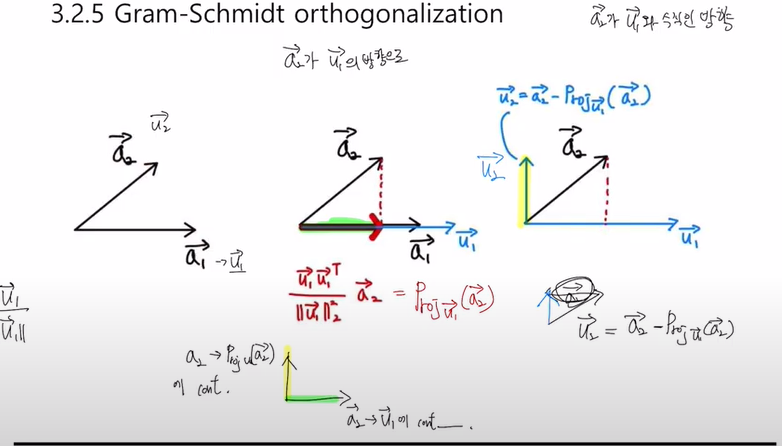 3.2.5 Gram-Schmidt orthogonalization
a⃗₂가 u⃗₁와 수직인 방향
a⃗₂가 u⃗₁의 방향으로
u⃗₂ = a⃗₂ - Proj_u⃗₁(a⃗₂)
a⃗₂ u⃗₂
a⃗₁ → u⃗₁
a⃗₂
a⃗₁ u⃗₁
a⃗₂
u⃗₂
u⃗₁
u⃗₁
u⃗₁||
u⃗₁ u⃗₁ᵀ
||u⃗₁||₂²
a⃗₂ = Proj_u⃗₁(a⃗₂)
u⃗₂ = a⃗₂ - Proj_u⃗₁(a⃗₂)
a₂ → Proj u(a⃗₂)
에 cont.
a⃗₂ → u⃗₁에 cont